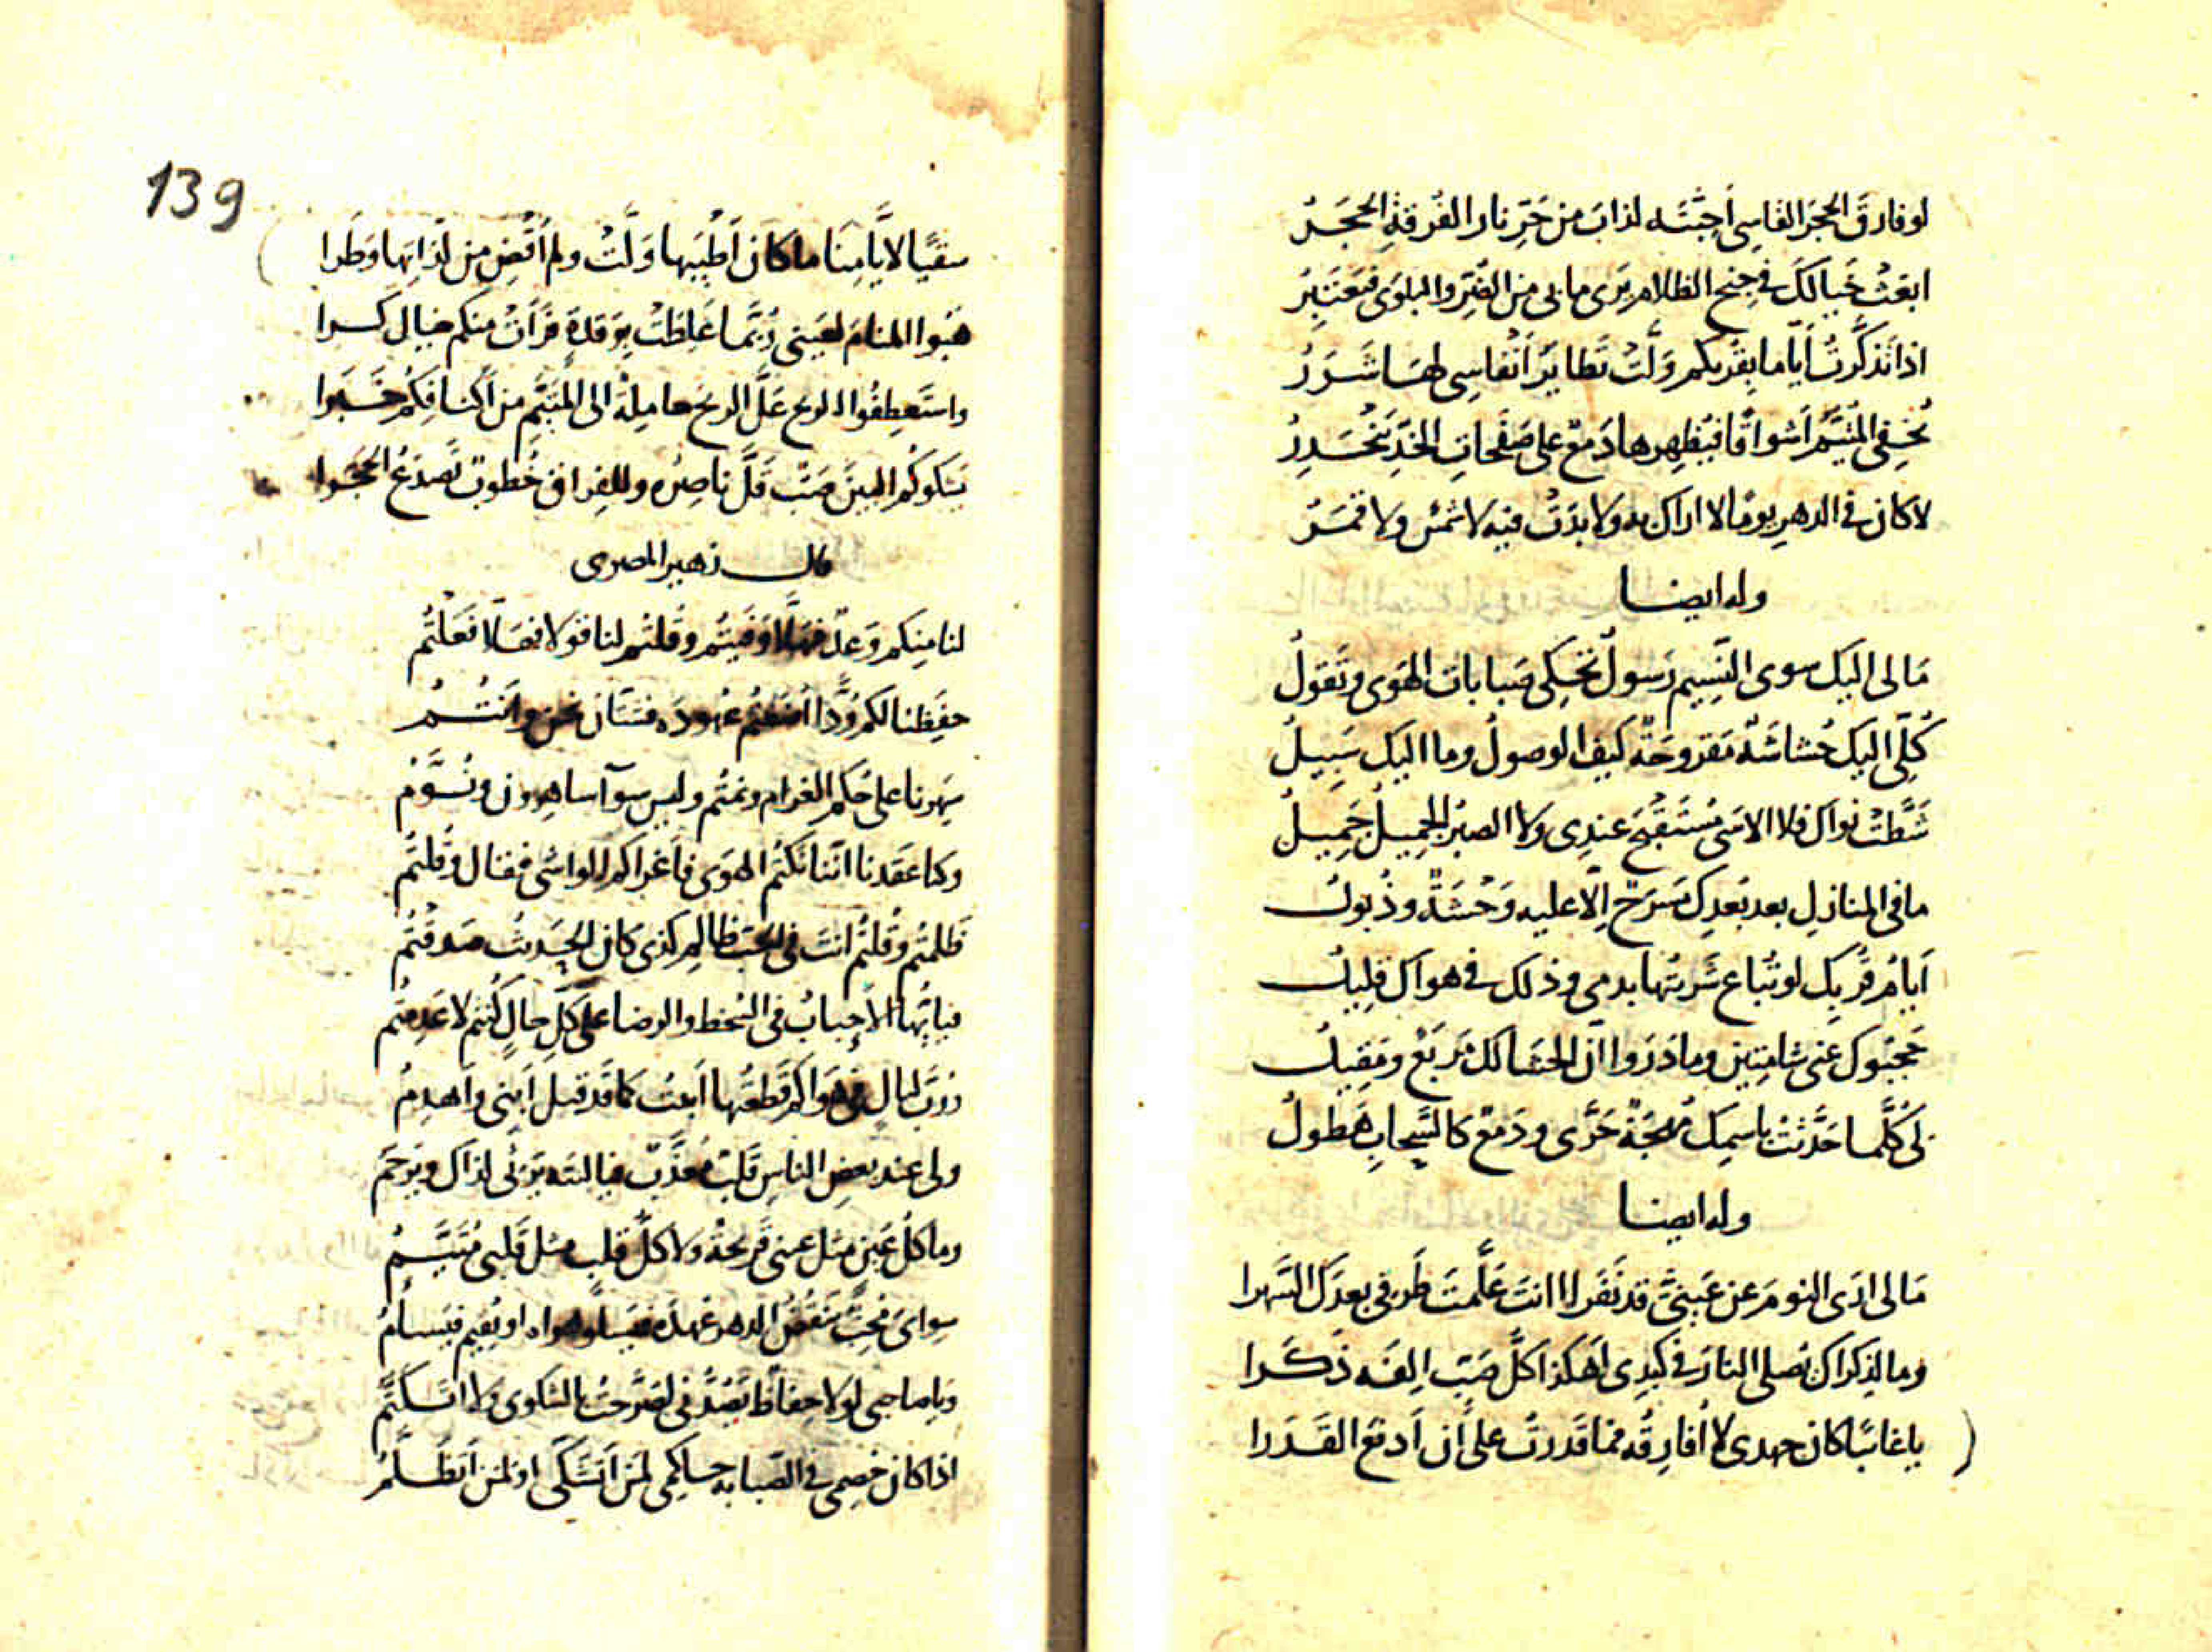 لو فارق الحجر القاسي أحبّته لذاب من حرّ نار الفرقة الحجر
ابعث خيالك في جنح الظلام يرى ما بي من الضرّ والبلوى فيعتبر
اذا تذكّرت أيّاما بقربكم ولّت تطاير أنفاسي لها شرر
يخفي المتيّم أشواقا فيظهرها دمع على صفحات الخدّ ينحدر
لا كان في الدهر يوما لا اراك به ولا بدت فيه لا شمس ولا قمر
وله ايضا
مالى اليك سوى النسيم رسول يحكى صبابات الهوى ويقول
كلّي اليك حشاشة مقروحة كيف الوصول وما اليك سبيل
شطّت نواك فلا الاسى مستقبح عندى ولا الصبر الجميل جميل
ما في المنازل بعد بعدك مسرح إلّا عليه وحشة وذبول
أيام قربك لو تباع شريتها بدمي وذلك في هواك قليل
حجبوك عنى شامتين وما دروا انّ الحشا لك مربع ومقيل
لى كلّما حدّثت باسمك مهجة حرّى ودمع كالسّحاب هطول
وله ايضا
مالى ارى النوم عن عينيّ قد نفرا اانت علّمت طرفى بعدك السّهرا
وما لذكراك تصلى النار في كبدى أهكذا كلّ صبّ إلفه ذكرا
يا غائبًا كان جهدى لا أفارقه فما قدرت على ان أدفع القدرا
139
سقيًا لايّامنا ما كان أطيبها ولّت ولم أقض من لذّاتها وطرا
هبوا المنام لعينى ربّما غلطت برقدة فرأت منكم خيال كرا
واستعطفوا الريح علّ الريح حاملة الى المتيّم من أكنافكم خبرا
يشكوكم البين صبّ قلّ ناصره وللفراق خطوب تصدع الحجرا
قال زهير المصرى
لنا منكم وعد فهلّا وفيتم وقلتم لنا قولا فهلّا فعلتم
حفظنا لكم ودّا أضعتم عهوده فشتّان نحن وأنتم
سهرنا على حكم الغرام ونمتم وليس سوآ ساهرون ونوّم
وكنا عقدنا اننا نكتم الهوى فأغراكم الواشى فقال وقلتم
ظلمتم وقلتم انت في الحبّ ظالم كذى كان الحديث صدقتم
فيا أيّها الأحباب في السخط والرضا على كلّ حال كنتم لا عدمتم
وربّ ليال في هواكم قطعتها أبيت كما قد قيل أبنى وأهدم
ولى عند بعض الناس قلب معذّب فيا ليته يرثى لذاك ويرحم
وما كلّ عين مثل عينى قريحة ولا كلّ قلب مثل قلبى متيّم
سواى محبّ ينقض الدهر عهده فيسلو هواه او يقيم فيسأم
ويا صاحبى لولا حفاظ يصدّنى لصرّحت بالشكوى ولا اتكتّم
اذا كان خصمى في الصبابه حاكمى لمن أتشكّى او لمن أتظلّم